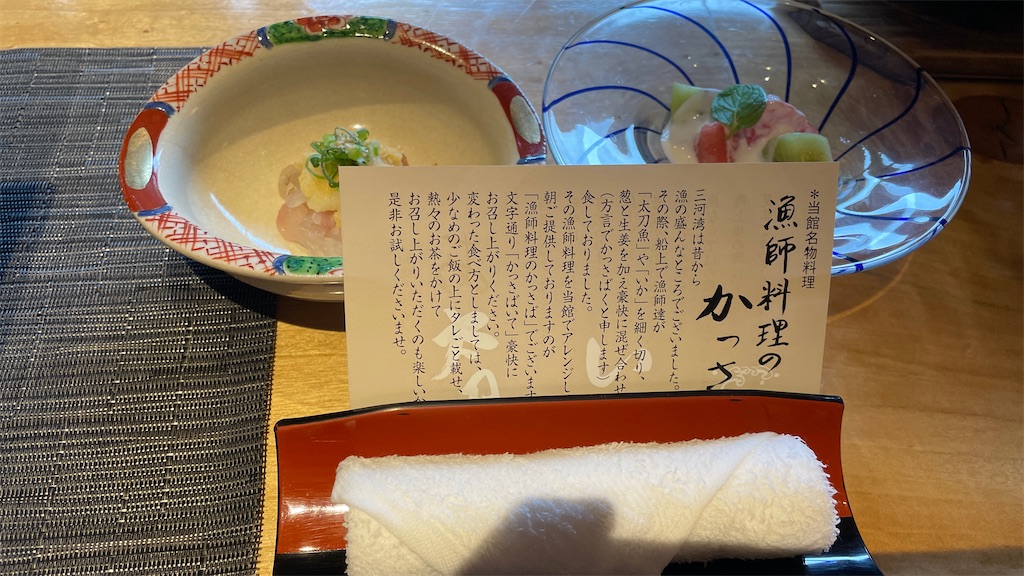 ＊当館名物料理
漁師料理の
かっさ
三河湾は昔から
漁の盛んなところでございました。
その際、船上で漁師達が
「太刀魚」や「いか」を細く切り、
葱と生姜を加え豪快に混ぜ合わせ
（方言でかっさばくと申します
食しておりました。
その漁師料理を当館でアレンジし
朝ご提供しておりますのが
「漁師料理のかっさば」でございます
文字通り「かっさばいて」豪快に
お召し上がりください。
変わった食べ方としましては、
少なめのご飯の上にタレごと載せ、
熱々のお茶をかけて
お召し上がりいただくのも楽しい
是非お試しくださいませ。